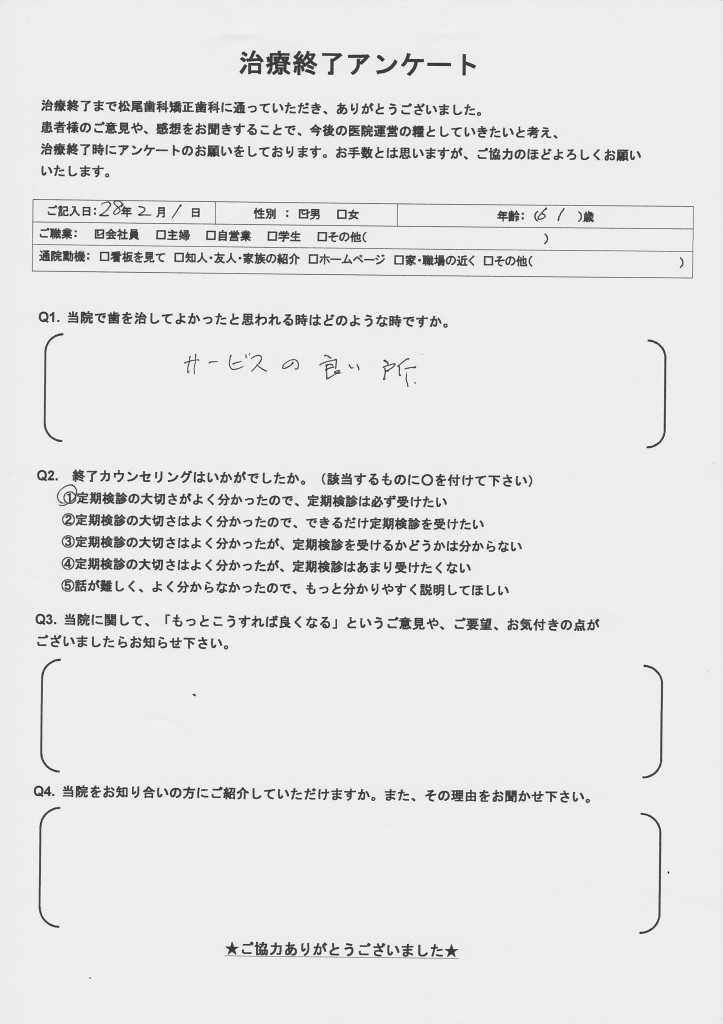 治療終了アンケート
治療終了まで松尾歯科矯正歯科に通っていただき、ありがとうございました。
患者様のご意見や、感想をお聞きすることで、今後の医院運営の糧としていきたいと考え、
治療終了時にアンケートのお願いをしております。お手数とは思いますが、ご協力のほどよろしくお願い
いたします。
ご記入日:28年2月1日 性別 : ☑男 □女 年齢:(61)歳
ご職業: ☑会社員 □主婦 □自営業 □学生 □その他( )
通院動機: □看板を見て □知人・友人・家族の紹介 □ホームページ □家・職場の近く □その他( )
Q1. 当院で歯を治してよかったと思われる時はどのような時ですか。
サービスの良い所
Q2. 終了カウンセリングはいかがでしたか。(該当するものに〇を付けて下さい)
①定期検診の大切さがよく分かったので、定期検診は必ず受けたい
②定期検診の大切さはよく分かったので、できるだけ定期検診を受けたい
③定期検診の大切さはよく分かったが、定期検診を受けるかどうかは分からない
④定期検診の大切さはよく分かったが、定期検診はあまり受けたくない
⑤話が難しく、よく分からなかったので、もっと分かりやすく説明してほしい
Q3. 当院に関して、「もっとこうすれば良くなる」というご意見や、ご要望、お気付きの点が
ございましたらお知らせ下さい。
Q4. 当院をお知り合いの方にご紹介していただけますか。また、その理由をお聞かせ下さい。
★ご協力ありがとうございました★